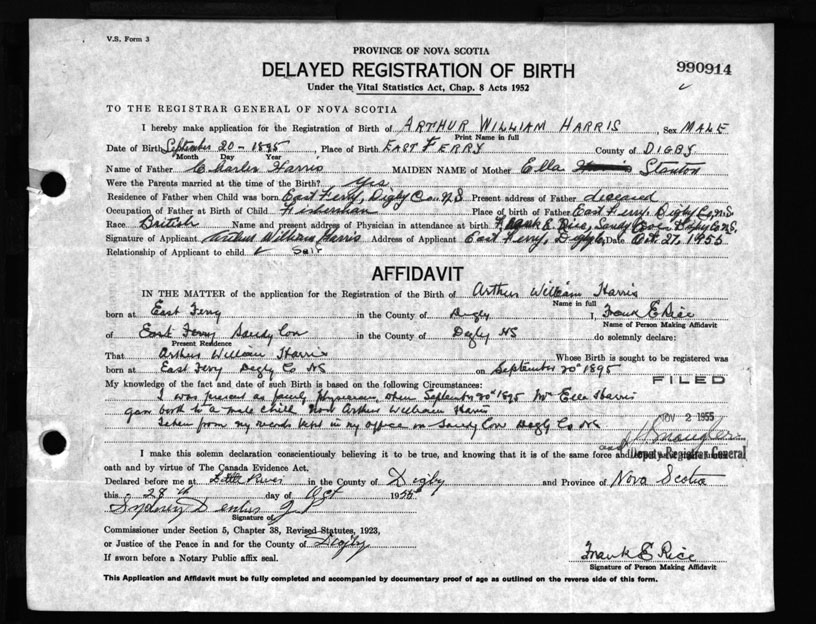 V.S. Form 3
PROVINCE OF NOVA SCOTIA
DELAYED REGISTRATION OF BIRTH
990914
Under the Vital Statistics Act, Chap. 8 Acts 1952
TO THE REGISTRAR GENERAL OF NOVA SCOTIA
I hereby make application for the Registration of Birth of ARTHUR WILLIAM HARRIS, Sex MALE
Print Name in full
Date of Birth September 20 - 1895, Place of Birth EAST FERRY County of DIGBY
Month Day Year
Name of Father Charles Harris MAIDEN NAME of Mother Ella Stanton
Were the Parents married at the time of the Birth? Yes
Residence of Father when Child was born East Ferry, Digby Co. N.S. Present address of Father deceased
Occupation of Father at Birth of Child Fisherman Place of birth of Father East Ferry, Digby Co, N.S.
Race British Name and present address of Physician in attendance at birth Frank E. Rice, Sandy Cove Digby Co N.S.
Signature of Applicant Arthur William Harris Address of Applicant East Ferry, Digby Date Oct. 27, 1955
Relationship of Applicant to child
AFFIDAVIT
IN THE MATTER of the application for the Registration of the Birth of Arthur William Harris
Name in full
born at East Ferry in the County of Digby I, Frank E Rice
Name of Person Making Affidavit
of East Ferry Sandy Cove in the County of Digby NS do solemnly declare:
Present Residence
That Arthur William Harris Whose Birth is sought to be registered was
born at East Ferry Digby Co NS on September 20th 1895
My knowledge of the fact and date of such Birth is based on the following Circumstances:
FILED
I was present as family Physician when September 20th 1895 Mrs Ella Harris
gave birth to a male child now Arthur William Harris
NOV 2 1955
Taken from my records kept in my office on Sandy Cove Digby Co NS
I make this solemn declaration conscientiously believing it to be true, and knowing that it is of the same force and
Deputy Registrar General
oath and by virtue of The Canada Evidence Act.
Declared before me at Little River in the County of Digby and Province of Nova Scotia
this 28th day of Oct 1955
Sydney Denton J P
Signature of
Commissioner under Section 5, Chapter 38, Revised Statutes, 1923,
or Justice of the Peace in and for the County of Digby
If sworn before a Notary Public affix seal.
Frank E Rice
Signature of Person Making Affidavit
This Application and Affidavit must be fully completed and accompanied by documentary proof of age as outlined on the reverse side of this form.